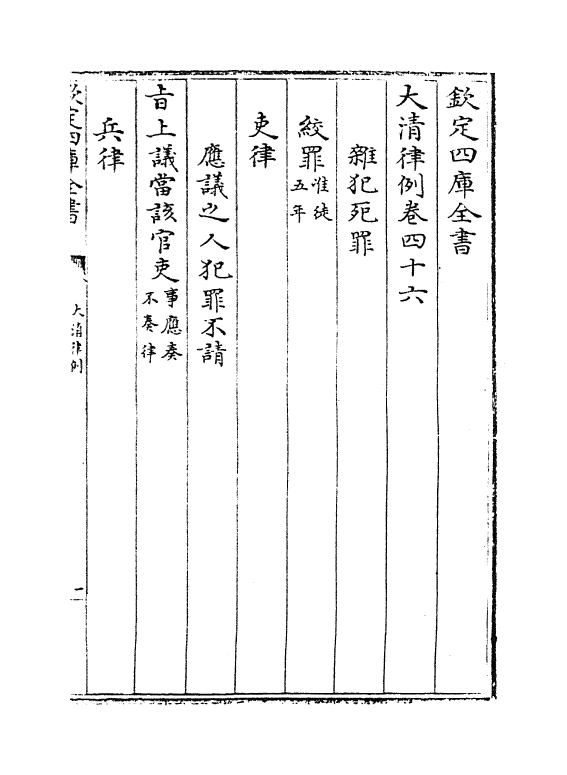 欽定四庫全書
大清律例卷四十六
雜犯死罪
絞罪准徒五年
吏律
應議之人犯罪不請
旨上議當該官吏事應奏不奏律
兵律
欽定四庫全書
大清律例
一